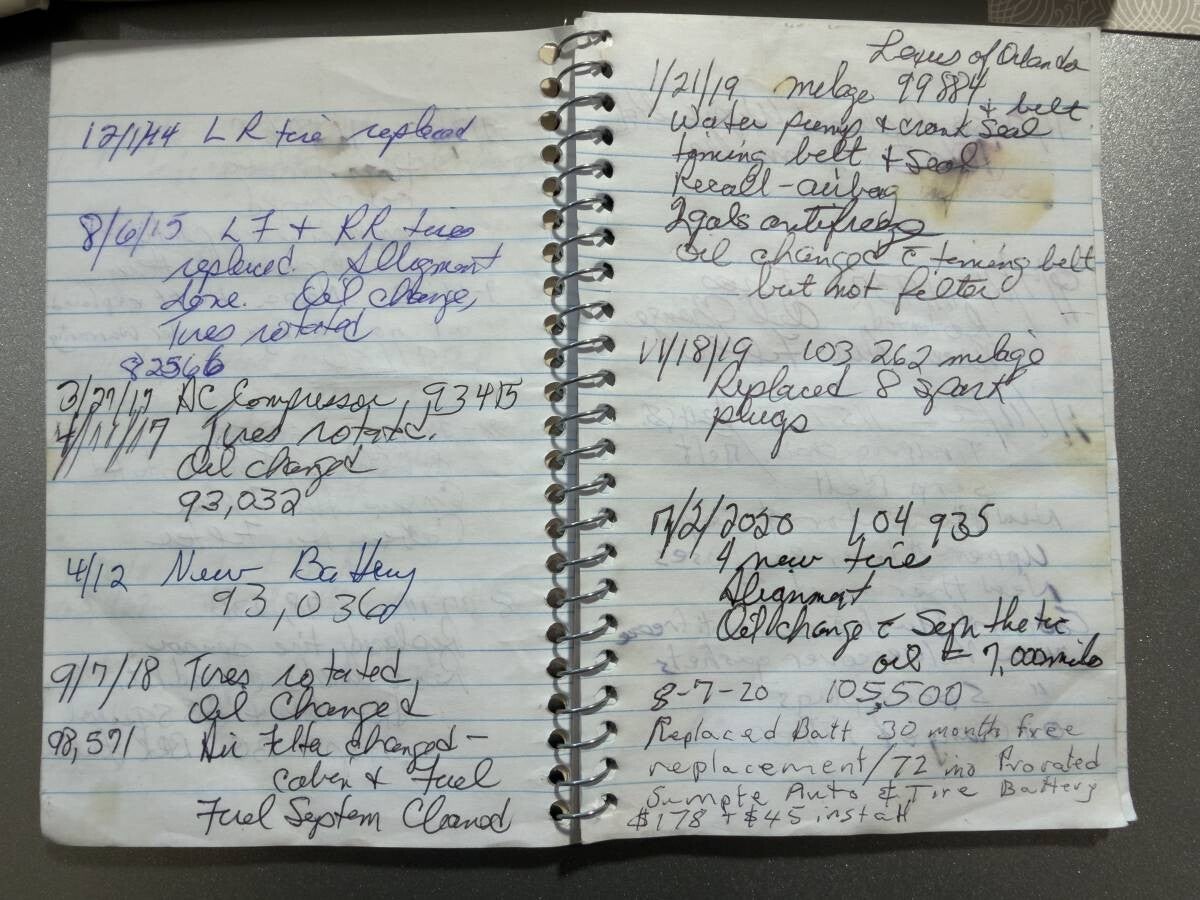 12/1/14 L R tire replaced
8/6/15 L F + RR tires
replaced. Allignment
done. Oil change,
Tires rotated
82566
3/27/17 AC Compressor, 93415
4/11/17 Tires rotated.
Oil changed
93,032
4/12 New Battery
93,036
9/7/18 Tires rotated,
Oil Changed
98,571 Air Filter changed -
cabin + Fuel
Fuel System Cleaned
Lexus of Orlando
1/21/19 milage 99884
+ belt
Water pump + crank seal
timing belt + seal
Recall - airbag
2gals antifreeze
Oil changed c̄ timing belt
but not filter
11/18/19 103 262 milage
Replaced 8 spark
plugs
/2/2020 104 935
4 new tire
Alignment
Oil change c̄ Synthetic
oil = 7,000 miles
8-7-20 105,500
Replaced Batt 30 month free
replacement/72 mo Prorated
Auto & Tire Battery
$178 + $45 install